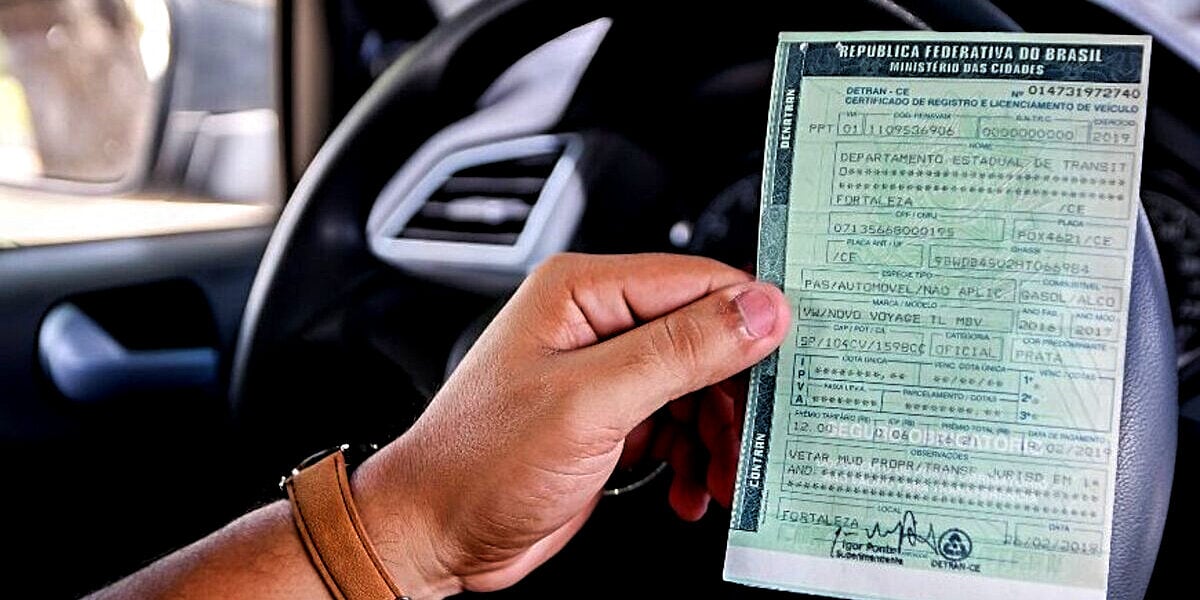 REPUBLICA FEDERATIVA DO BRASIL
MINISTÉRIO DAS CIDADES
DETRAN - CE Nº 014731972740
CERTIFICADO DE REGISTRO E LICENCIAMENTO DE VEÍCULO
VIA CÓD. RENAVAM R.N.T.R.C. EXERCÍCIO
PPT 01 1109536906 0000000000 2019
NOME
DEPARTAMENTO ESTADUAL DE TRANSIT
O*****************************
FORTALEZA /CE
CPF / CNPJ PLACA
07135668000195 POX4621/CE
PLACA ANT / UF CHASSI
/CE 9BWDB45U2HT066984
ESPÉCIE TIPO COMBUSTÍVEL
PAS/AUTOMOVEL/NAO APLIC GASOL/ALCO
MARCA / MODELO ANO FAB. ANO MOD.
VW/NOVO VOYAGE TL MBV 2016 2017
CAP / POT / CIL CATEGORIA COR PREDOMINANTE
5P/104CV/1598CC OFICIAL PRATA
IPVA
COTA ÚNICA VENC. COTA ÚNICA VENC. / COTAS
********,** **/**/** 1ª
FAIXA I.P.V.A. PARCELAMENTO / COTAS 2ª
3ª
PRÊMIO TARIFÁRIO (R$) IOF (R$) PRÊMIO TOTAL (R$) DATA DE PAGAMENTO
SEGURO OBRIGATÓRIO
12.00 0.06 /02/2019
OBSERVAÇÕES
VETAR MUD PROPR/TRANSF JURISD EM 1*
AND.
LOCAL DATA
FORTALEZA 26/02/2019
Igor Ponte
Superintendente
DETRAN-CE
DENATRAN
CONTRAN